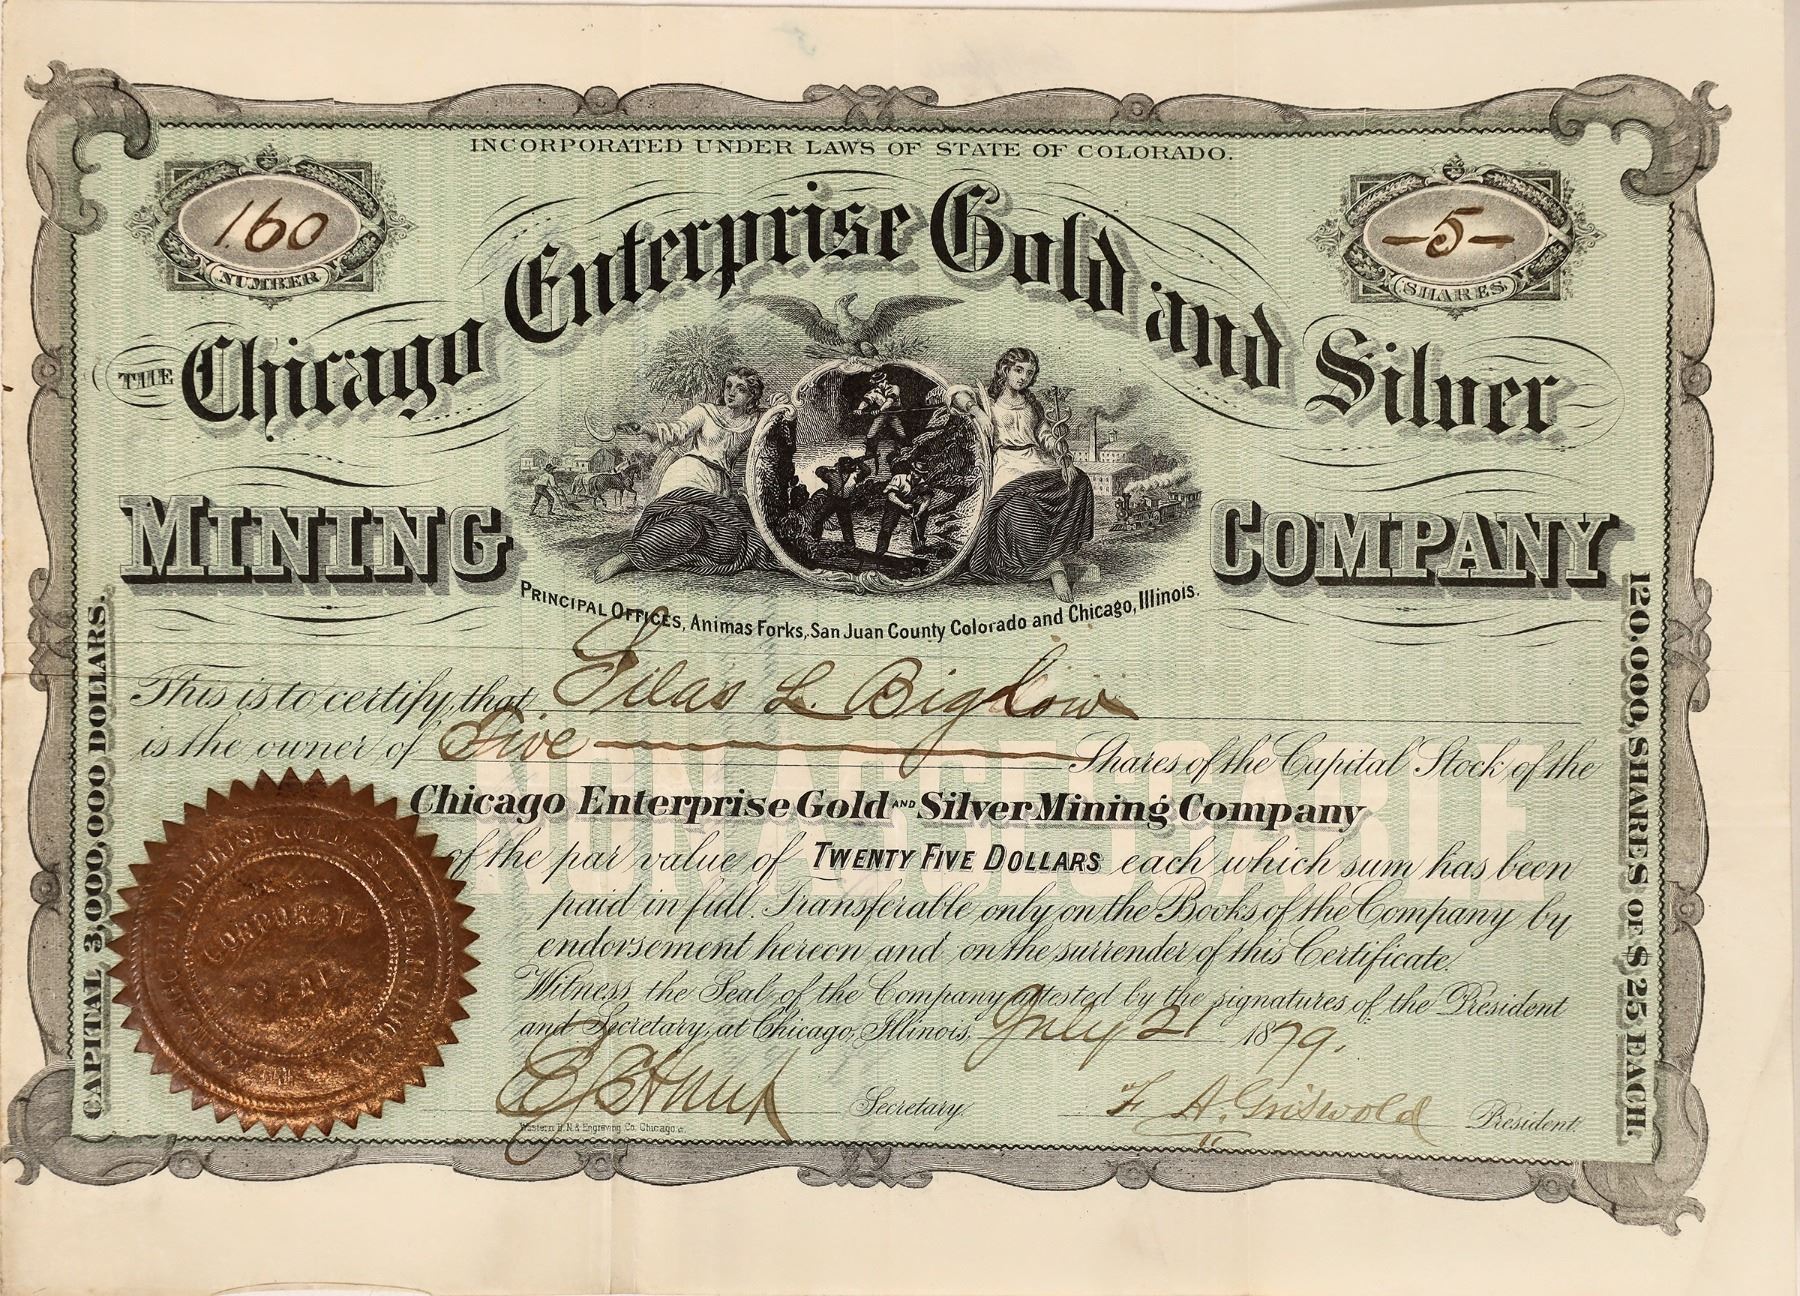 INCORPORATED UNDER LAWS OF STATE OF COLORADO.
160
NUMBER
-5-
SHARES.
THE Chicago Enterprise Gold and Silver
MINING COMPANY
PRINCIPAL OFFICES, Animas Forks, San Juan County Colorado and Chicago, Illinois.
CAPITAL 3,000,000 DOLLARS.
120,000, SHARES OF $25 EACH.
This is to certify, that Silas L. Bigelow
is the owner of Five Shares of the Capital Stock of the
NON ASSESSABLE
Chicago Enterprise Gold AND Silver Mining Company
of the par value of TWENTY FIVE DOLLARS each which sum has been
paid in full. Transferable only on the Books of the Company by
endorsement hereon and on the surrender of this Certificate.
Witness, the Seal of the Company attested by the signatures of the President
and Secretary, at Chicago, Illinois, July 21 1879.
Secretary. F. A. Griswold President.
Western B. N. & Engraving Co. Chicago.
CHICAGO ENTERPRISE GOLD & SILVER MINING CO.
CORPORATE
SEAL